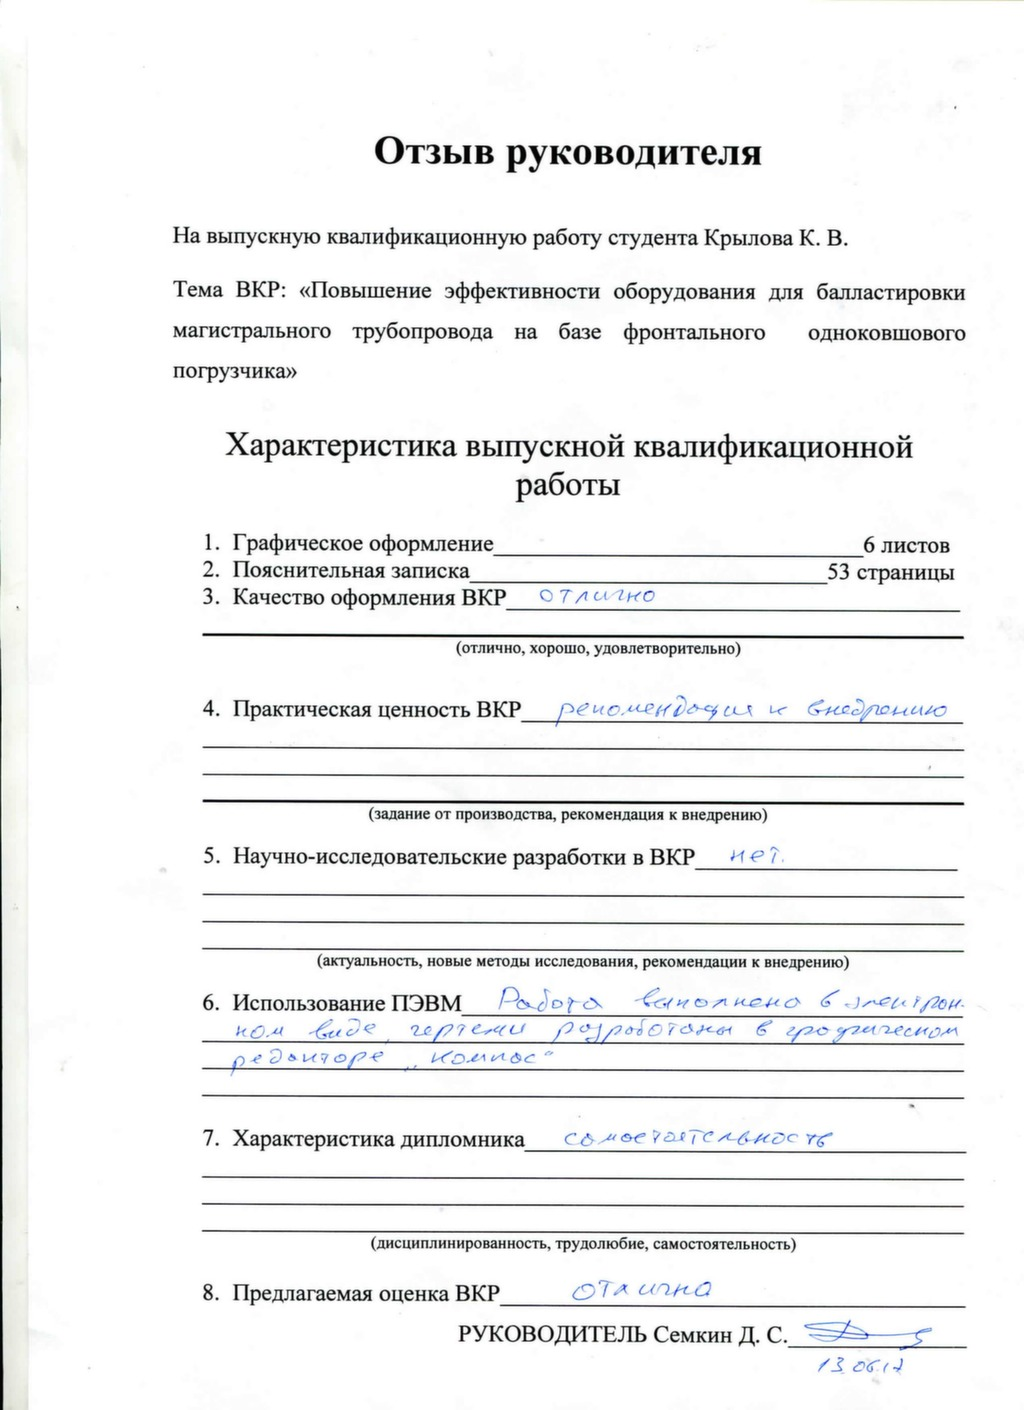 Отзыв руководителя
На выпускную квалификационную работу студента Крылова К. В.
Тема ВКР: «Повышение эффективности оборудования для балластировки
магистрального трубопровода на базе фронтального одноковшового
погрузчика»
Характеристика выпускной квалификационной
работы
1. Графическое оформление 6 листов
2. Пояснительная записка 53 страницы
3. Качество оформления ВКР отлично
(отлично, хорошо, удовлетворительно)
4. Практическая ценность ВКР рекомендация к внедрению
(задание от производства, рекомендация к внедрению)
5. Научно-исследовательские разработки в ВКР нет.
(актуальность, новые методы исследования, рекомендации к внедрению)
6. Использование ПЭВМ Работа выполнена в электрон-
ном виде, чертежи разработаны в графическом
редакторе „Компас"
7. Характеристика дипломника самостоятельность
(дисциплинированность, трудолюбие, самостоятельность)
8. Предлагаемая оценка ВКР отлично
РУКОВОДИТЕЛЬ Семкин Д. С.
13.06.17